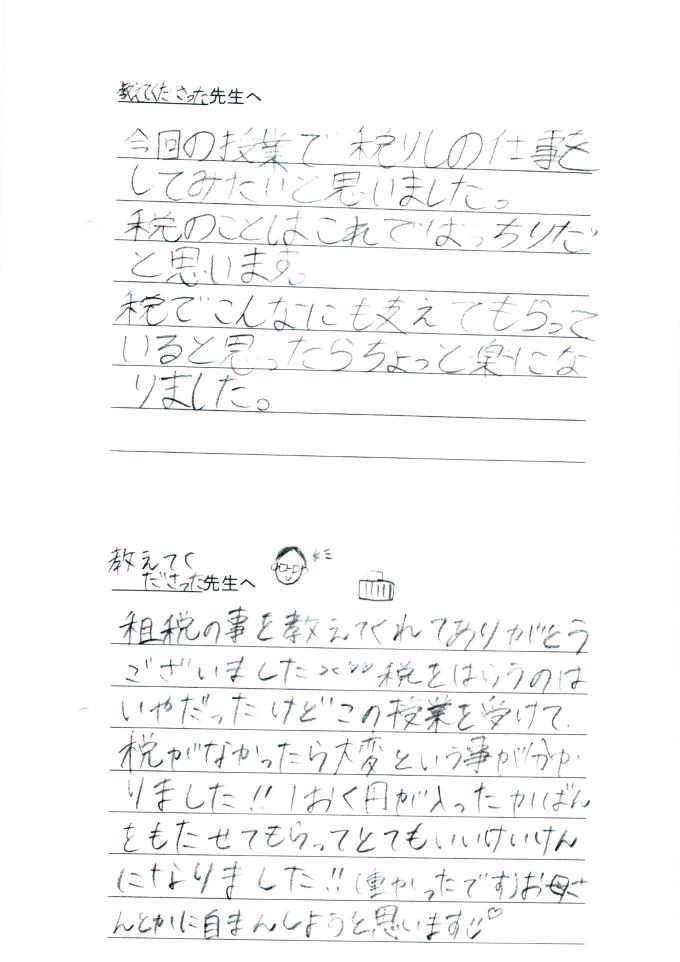 教えてくださった先生へ
今回の授業で税りしの仕事を
してみたいと思いました。
税のことはこれでばっちりだ
と思います。
税でこんなにも支えてもらって
いると思ったらちょっと楽にな
りました。
教えてく
ださった先生へ
租税の事を教えてくれてありがとう
ございました 税をはらうのは
いやだったけどこの授業を受けて
税がなかったら大変という事が分か
りました!! 1おく円が入ったかばん
をもたせてもらってとてもいいけいけん
になりました!! (重かったです)お母さ
んとかに自まんしようと思います♡